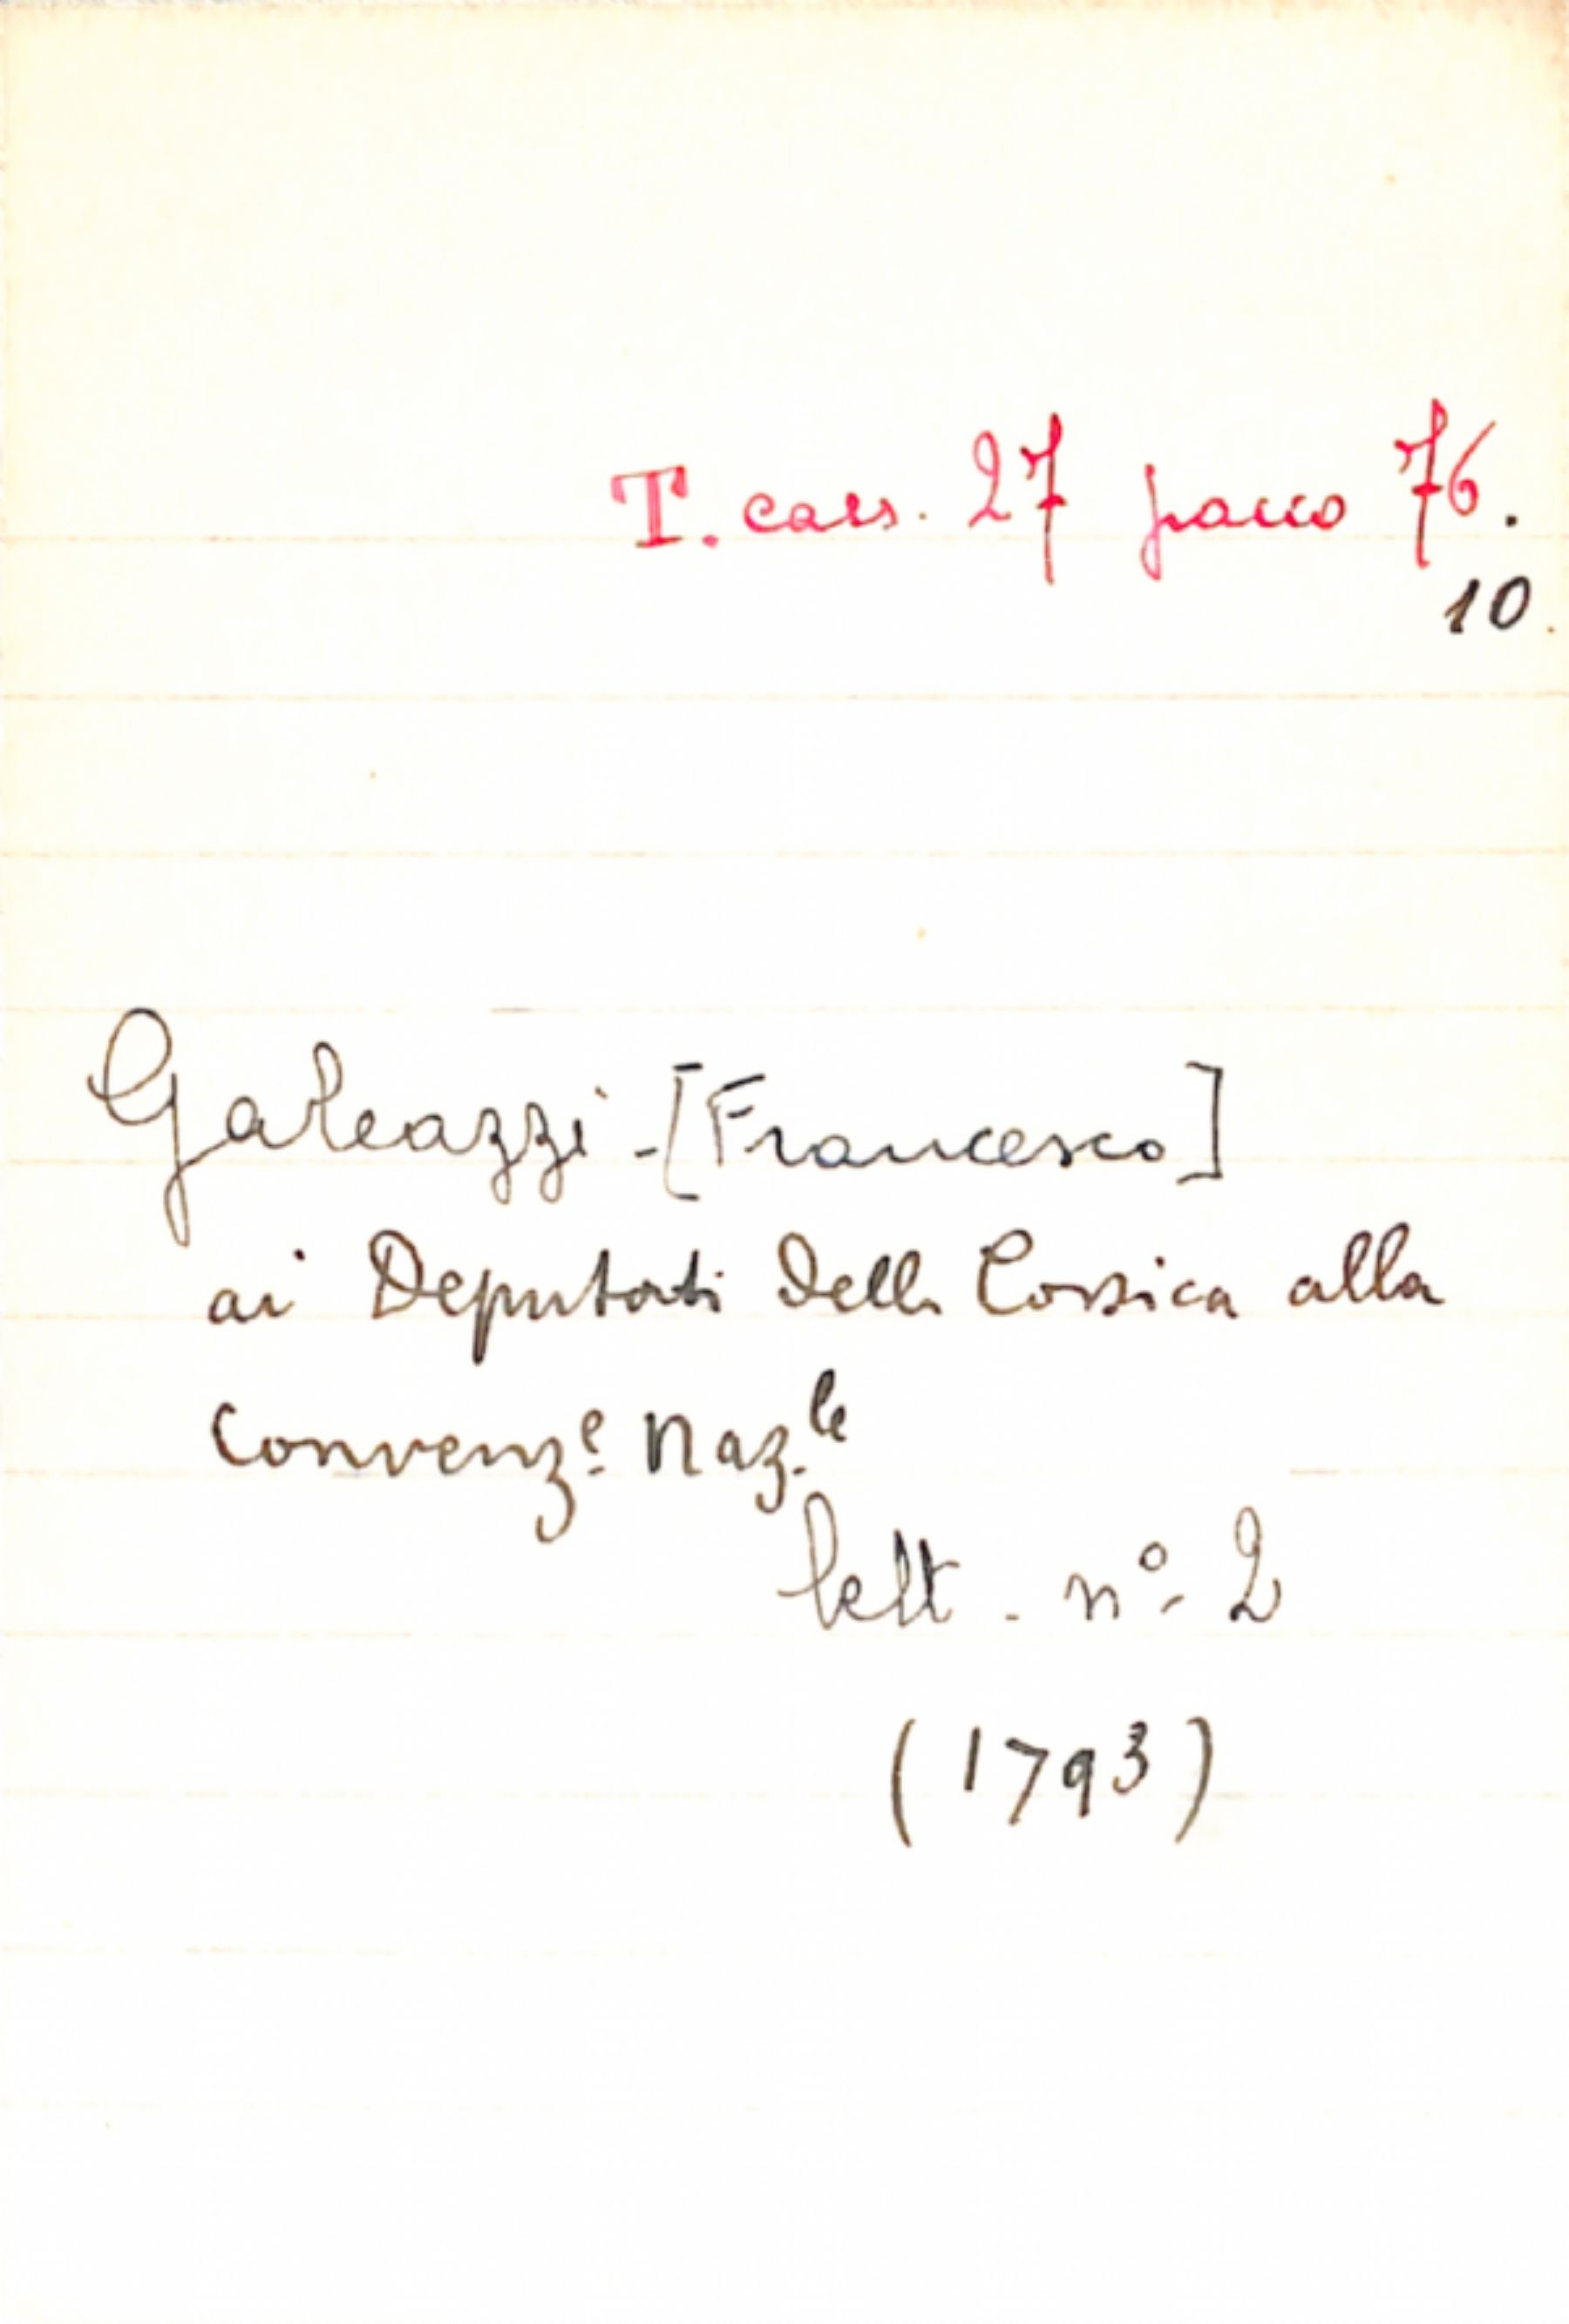 T. cass. 27 pacco 76.
10.
Galeazzi - [Francesco]
ai Deputati della Corsica alla
Convenz.e Naz.le
lett. n.o 2
(1793)